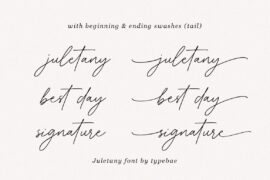 with beginning & ending swashes (tail)
juletany juletany
best day best day
signature signature
Juletany font by typebae